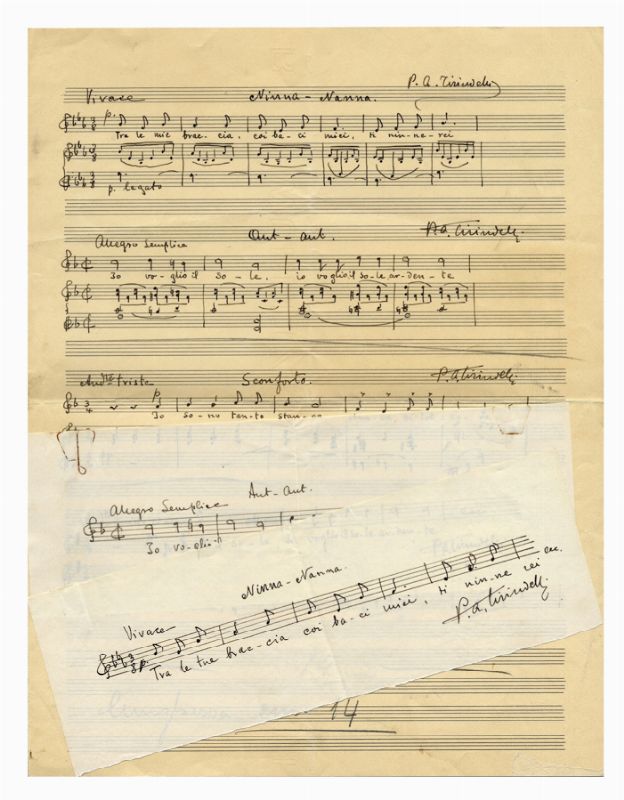 Vivace Ninna-Nanna. P. A. Tirindelli
p. Tra le mie brac-cia, coi ba-ci miei, ti nin-ne-rei
p. legato
Allegro Semplice Aut-aut. P. A. Tirindelli
Io vo-glio il So-le, io voglio il so-le ar-den-te
And.no triste Sconforto. P. A. Tirindelli
p
Io so-no tan-to stan-co
Allegro Semplice Aut-Aut.
Io vo-glio il
Ninna-Nanna.
Vivace
p. Tra le tue brac-cia coi ba-ci miei, ti nin-ne rei ecc.
P. A. Tirindelli
14